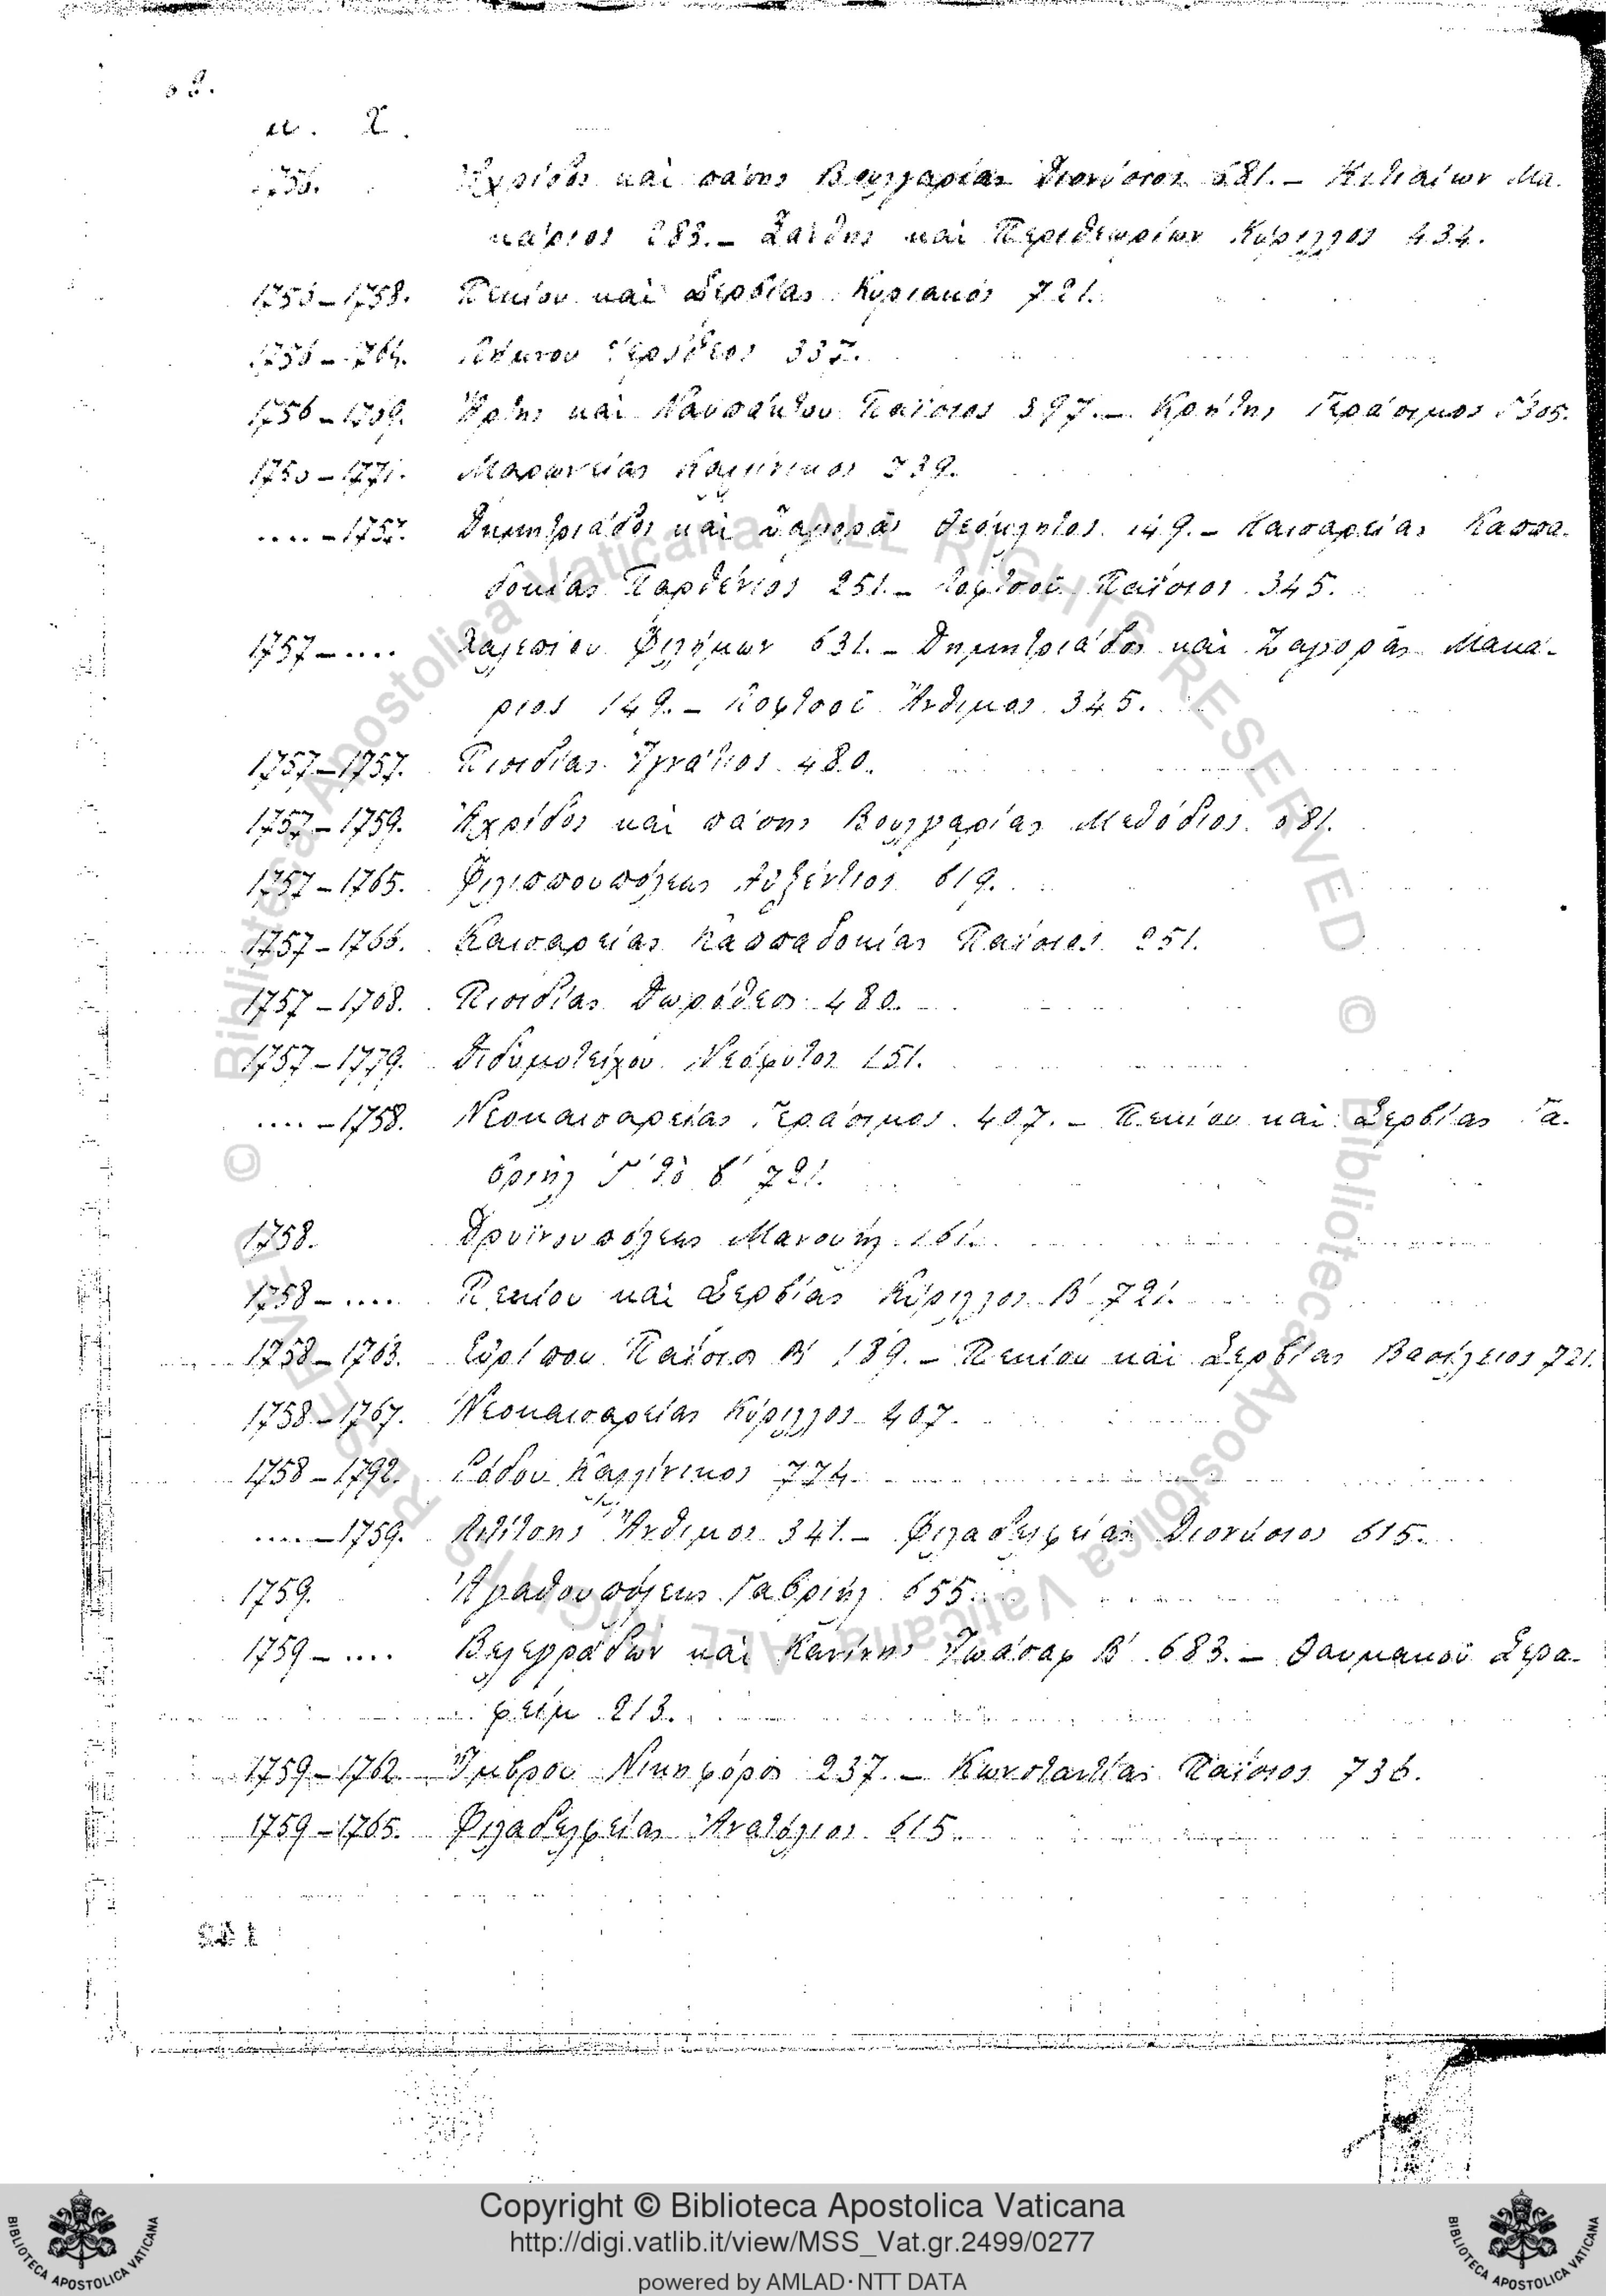 μ. Χ.
1756. Ἀχρίδος καὶ πάσης Βουλγαρίας Διονύσιος 681. — Κιτιαίων Μα-
κάριος 283. — Ξάνθης καὶ Περιθεωρίων Κύριλλος 434.
1756 — 1758. Πεκίου καὶ Σερβίας Κυριακός 721.
Λήμνου Ἱερόθεος 337.
Ἄρτης καὶ Ναυπάκτου Παΐσιος 397. — Κρήτης Γεράσιμος Γ' 305.
Μαρωνείας Καλλίνικος
.... — 1757. Δημητριάδος καὶ Ζαγορᾶς Θεόκλητος 149. — Καισαρείας Καππα-
δοκίας Παρθένιος 251. — Λοφτσοῦ Παΐσιος 345.
1757 — .... Χαλεπίου Φιλήμων 631. — Δημητριάδος καὶ Ζαγορᾶς Μακά-
ριος 149. — Λοφτσοῦ Ἄνθιμος 345.
1757 — 1757. Πισιδίας Ἰγνάτιος 480.
1757 — 1759. Ἀχρίδος καὶ πάσης Βουλγαρίας Μεθόδιος 681.
1757 — 1765. Φιλιππουπόλεως Αὐξέντιος 619.
1757 — 1766. Καισαρείας Καππαδοκίας Παΐσιος 251.
1757 — 1768. Πισιδίας Δωρόθεος 480.
1757 — 1779. Διδυμοτείχου Νεόφυτος 151.
.... — 1758. Νεοκαισαρείας Γεράσιμος 407. — Πεκίου καὶ Σερβίας Γα-
βριὴλ Γ' τὸ β' 721.
1758. Δρυϊνουπόλεως Μανουὴλ 161.
1758 — .... Πεκίου καὶ Σερβίας Κύριλλος Β' 721.
1758 — 1763. Εὐρίπου Παΐσιος Β' 189. — Πεκίου καὶ Σερβίας Βασίλειος 721.
1758 — 1767. Νεοκαισαρείας Κύριλλος 407.
1758 — 1792. Ῥόδου Καλλίνικος 774.
.... — 1759. Λιτίτσης Ἄνθιμος 341. — Φιλαδελφείας Διονύσιος 615.
1759. Ἀγαθουπόλεως Γαβριὴλ 655.
1759 — .... Βελεγράδων καὶ Κανίνης Ἰωάσαφ Β' 683. — Θαυμακοῦ Σερα-
φείμ 213.
1759 — 1762 Ἴμβρου Νικηφόρος 237. — Κωνσταντίας Παΐσιος 736.
1759 — 1765. Φιλαδελφείας Ἀνατόλιος 615.
Copyright © Biblioteca Apostolica Vaticana
http://digi.vatlib.it/view/MSS_Vat.gr.2499/0277
powered by AMLAD·NTT DATA